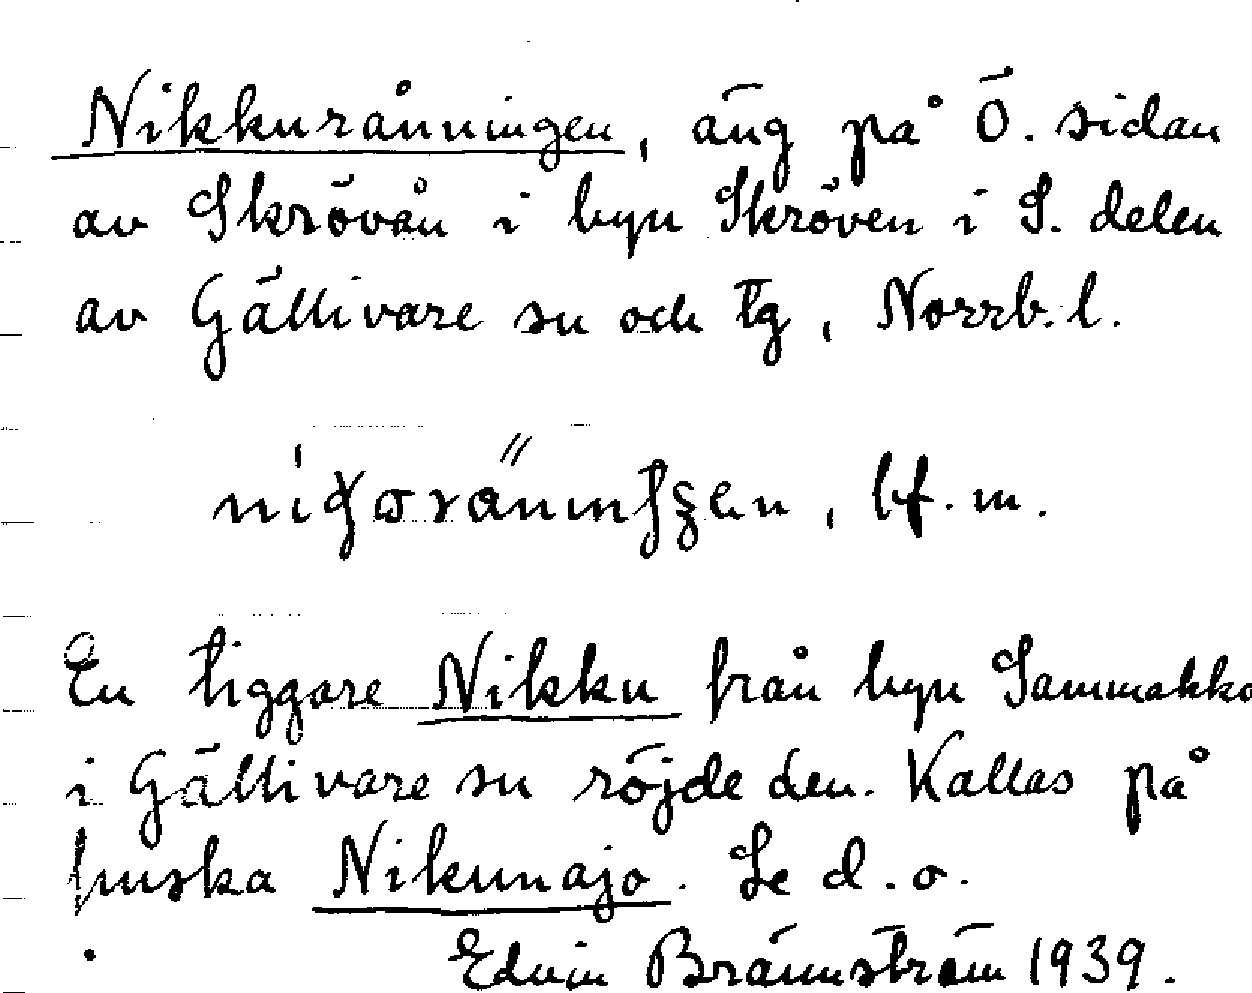 Nikkurånningen, äng på Ö. sidan
av Skrövån i byn Skröven i S. delen
av Gällivare sn och tg, Norrb. l.
bf. m.
En tiggare Nikku från byn Sammakko
i Gällivare sn röjde den. Kallas på
finska Nikunajo. Se d. o.
Edvin Brännström 1939.